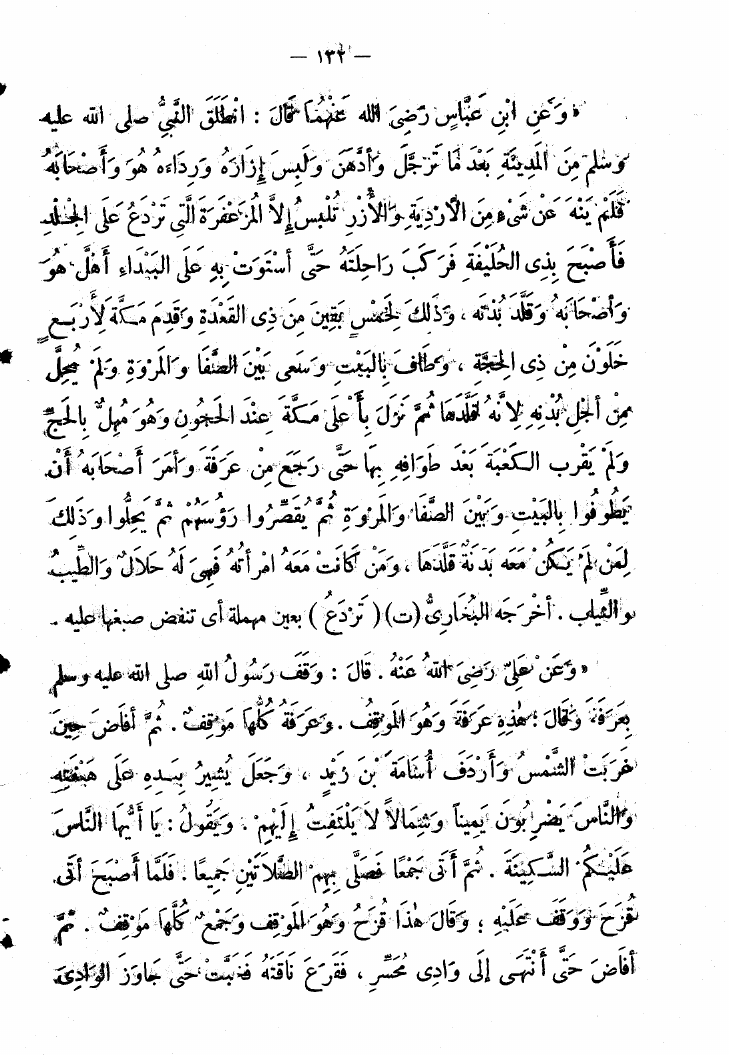 — ١٣٢ —
« وَعَنِ ابْنِ عَبَّاسٍ رَضِىَ الله عَنْهُمَا قَالَ : انْطَلَقَ النَّبِىُّ صلى الله عليه
وسلم مِنَ الْمَدِينَةِ بَعْدَ مَا تَرَجَّلَ وَأَدَّهَنَ وَلَبِسَ إِزَارَهُ وَرِدَاءهُ هُوَ وَأَصْحَابُهُ
فَلَمْ يَنْهَ عَنْ شَىْءٍ مِنَ الْأَرْدِيَةِ وَالْأُزْرِ تُلْبَسُ إِلاَّ الْمُزَعْفَرَةَ الَّتِى تَرْدَعُ عَلَى الْجِلْدِ
فَأَصْبَحَ بِذِى الْحُلَيْفَةِ فَرَكَبَ رَاحِلَتَهُ حَتَّى أسْتَوَتْ بِهِ عَلَى الْبَيْدَاءِ أَهَلَّ هُوَ
وَأَصْحَابُهُ وَقَلَّدَ بُدْنَهُ ، وَذٰلِكَ لِخَمْسٍ بَقِينَ مِنَ ذِى الْقَعْدَةِ وَقَدِمَ مَكَّةَ لِأَرْبَعٍ
خَلَوْنَ مِنْ ذِى الْحِجَّةِ ، وَطَافَ بِالْبَيْتِ وَسَعَى بَيْنَ الصَّفَا وَالْمَرْوَةِ وَلَمْ يُحِلَّ
مِنْ أَجْلِ بُدْنِهِ لِأَنَّهُ قَلَّدَهَا ثُمَّ نَزَلَ بِأَعْلَى مَكَّةَ عِنْدَ الْحَجُونِ وَهُوَ مُهِلٌّ بِالْحَجِّ
وَلَمْ يَقْرَبِ الْكَعْبَةَ بَعْدَ طَوَافِهِ بِهَا حَتَّى رَجَعَ مِنْ عَرَفَةَ وَأَمَرَ أَصْحَابَهُ أَنْ
يَطُوفُوا بِالْبَيْتِ وَبَيْنَ الصَّفَا وَالْمَرْوَةِ ثُمَّ يُقَصِّرُوا رُؤُسَهُمْ ثُمَّ يَحِلُّوا وَذٰلِكَ
لِمَنْ لَمْ يَكُنْ مَعَهُ بَدَنَةٌ قَلَّدَهَا ، وَمَنْ كَانَتْ مَعَهُ امْرَأَتُهُ فَهِىَ لَهُ حَلَالٌ وَالطِّيبُ
والثِّيَابُ . أَخْرَجَه الْبُخَارِىُّ (ت) ( تَرْدَعُ ) بعين مهملة أى تنفض صبغها عليه .
« وَعَنْ عَلِىٍّ رَضِىَ اللهُ عَنْهُ . قَالَ : وَقَفَ رَسُولُ اللهِ صلى الله عليه وسلم
بِعَرَفَةَ وَقَالَ : هٰذِهِ عَرَفَةُ وَهُوَ الْمَوْقِفُ . وَعَرَفَةُ كُلُّهَا مَوْقِفٌ . ثُمَّ أَفَاضَ حِينَ
غَرَبَتْ الشَّمْسُ وَأَرْدَفَ أُسَامَةَ بْنَ زَيْدٍ ، وَجَعَلَ يُشِيرُ بِيَدِهِ عَلَى هَيْنَتِهِ
وَالنَّاسُ يَضْرِبُونَ يَمِيناً وَشِمَالاً لاَ يَلْتَفِتُ إِلَيْهِمْ . وَيَقُولُ : يَا أَيُّهَا النَّاسُ
عَلَيْكُمُ السَّكِينَةَ . ثُمَّ أَتَى جَمْعًا فَصَلَّى بِهِمْ الصَّلَاتَيْنِ جَمِيعًا . فَلَمَّا أَصْبَحَ أَتَى
قُزَحَ وَوَقَفَ عَلَيْهِ ؛ وَقَالَ هٰذَا قُزَحُ وَهُوَ الْمَوْقِفُ وَجَمْعٌ كُلُّهَا مَوْقِفٌ . ثُمَّ
أَفَاضَ حَتَّى أَنْتَهَى إِلَى وَادِى مُحَسِّرٍ ، فَقَرَعَ نَاقَتَهُ فَخَبَّتْ حَتَّى جَاوَزَ الْوَادِىَ